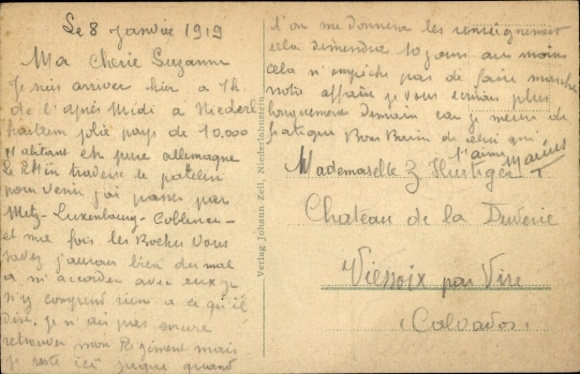 Le 8 Janvier 1919
Ma Cherie Suzanne
Je suis arriver hier a 1h.
de l'après Midi à Niederl
hastrem jolie pays de 10.000
Habitant en pure allemagne
Le Rhin traverse le patelin
pour venir j'ai passer par
Metz - Luxembourg - Coblence -
et ma fois les Boches Vous
savez j'aurais bien du mal
a m'accorder avec eux je
n'y comprend rien a ce qu'il
dise. Je n'ai pas encore
retrouver mon Regiment mais
je reste ici jusque quand
l'on me donnera les renseignement
cela demendra 10 jours au moins
cela n'empêche pas de faire marché
noto affaire je vous ecrirais plus
longuement demain car je meurs de
fatigue Bons Baisers de celui qui
t'aime Marius
Verlag Johann Zell, Niederlahnstein
Mademoiselle Z Hurtiger
Chateau de la Duverie
Viessoix par Vire
(Calvados)